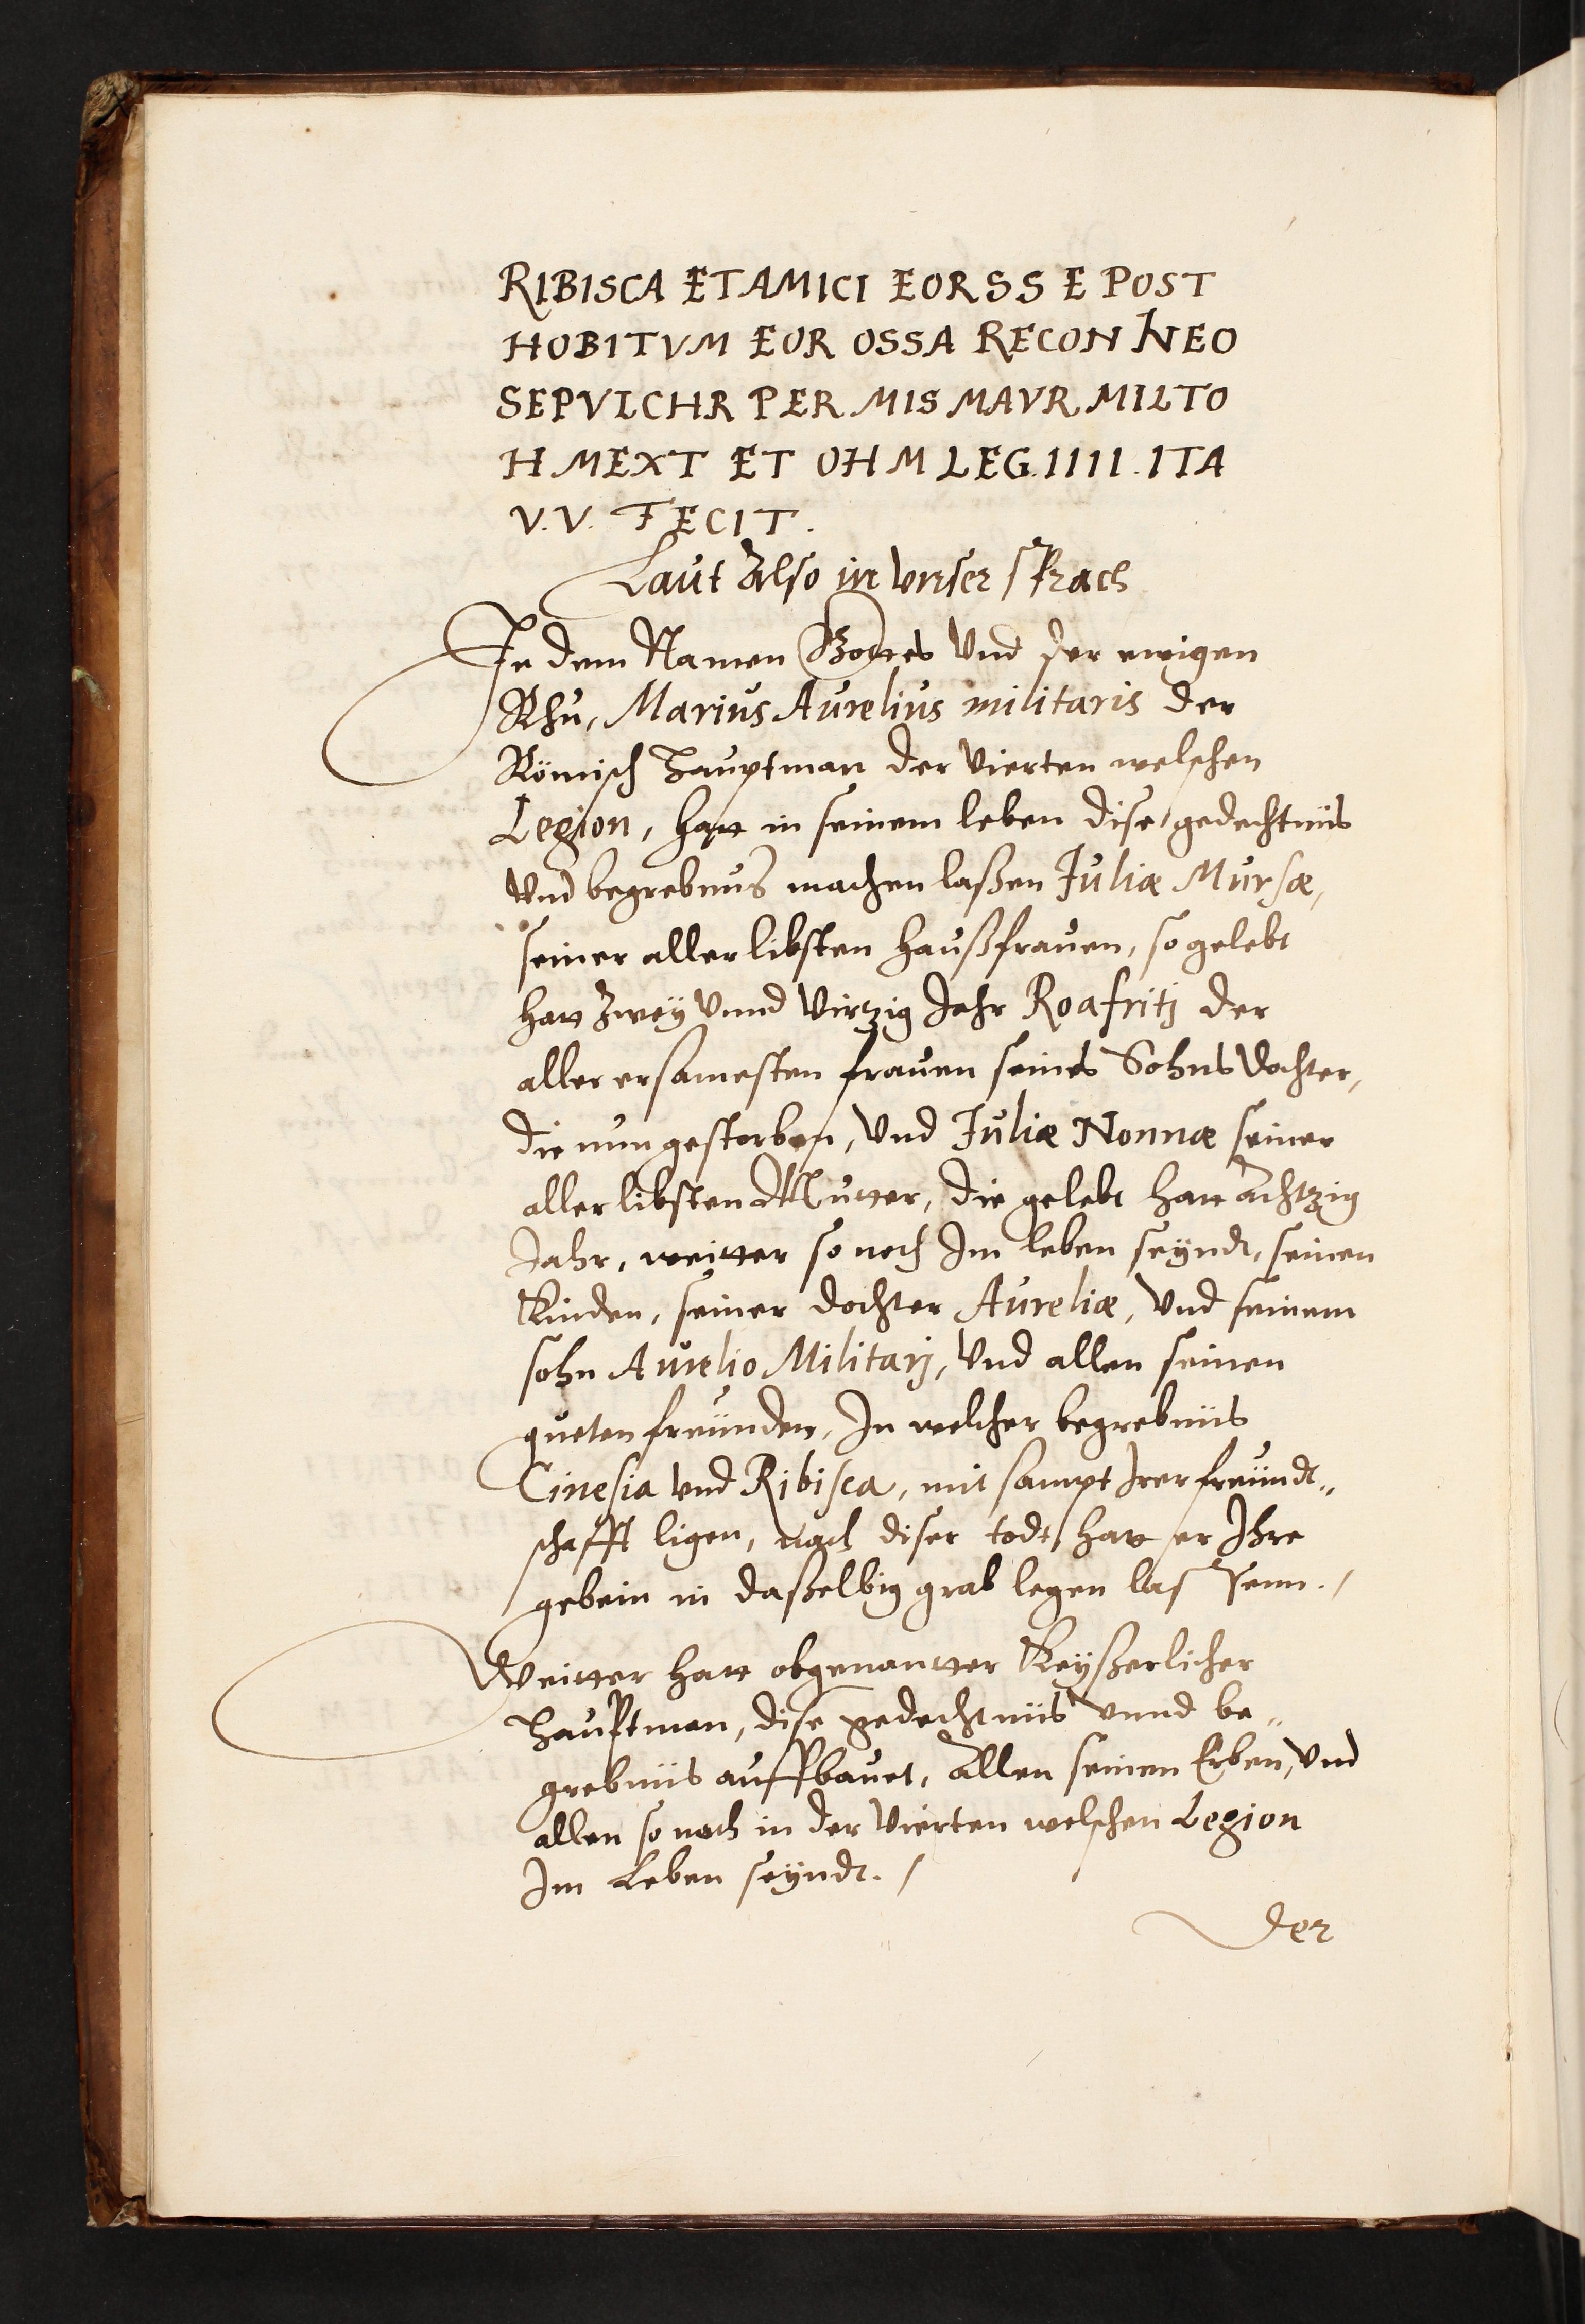 RIBISCA ET AMICI EOR SS E POST
HOBITVM EOR OSSA RECON INEO
SEPVLCHR PER MIS MAVR MILTO
H MEXT ET OHM LEG. IIII. ITA
V. V. FECIT.
Laut Also in vnser sprach
In dem Namen Gottes Vnd der ewigen
Rhu, Marius Aurelius militaris der
Römisch Hauptman der Vierten welschen
Legion, hatt in seinem leben dise gedechtnüs
Vnd begrebnus machen laßen Juliæ Mursæ,
seiner aller libsten haußfrauen, so gelebt
hatt Zwey Vnnd Virtzig Jahr Roafritj der
aller ersamesten frauen seines Sohns dochter,
die nun gestorben, Vnd Juliæ Nonnæ seiner
aller libsten Mutter, die gelebt hatt Achtzig
Jahr, weitter so noch Im leben seyndt, seinen
Kinden, seiner dochter Aureliæ, Vnd seinem
sohn Aurelio Militarj, Vnd allen seinen
gueten freünden, In welcher begrebnüs
Cinesia vnd Ribisca, mit sampt Irer freündt„
schafft ligen, nach diser todt hatt er Ihre
gebein in daßelbig grab legen las senn./
Weitter hatt obgenantter Keyßerlicher
Hauptman, dise gedechtnüs vnnd be„
grebnüs auffbauet, Allen seinen Erben, Vnd
allen so noch in der Vierten welschen Legion
Im Leben seyndt./
Der